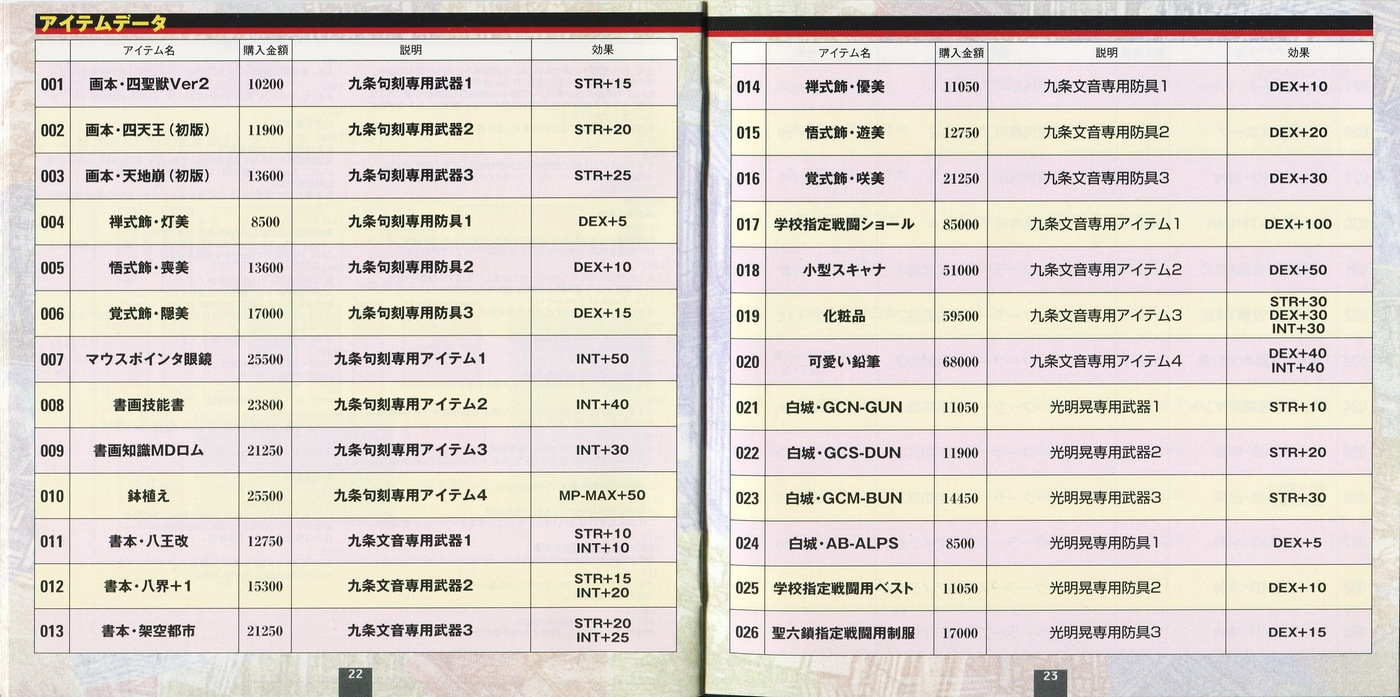 アイテムデータ
アイテム名 購入金額 説明 効果
001 画本・四聖獣Ver2 10200 九条句刻専用武器1 STR+15
002 画本・四天王(初版) 11900 九条句刻専用武器2 STR+20
003 画本・天地崩(初版) 13600 九条句刻専用武器3 STR+25
004 禅式飾・灯美 8500 九条句刻専用防具1 DEX+5
005 悟式飾・喪美 13600 九条句刻専用防具2 DEX+10
006 覚式飾・隠美 17000 九条句刻専用防具3 DEX+15
007 マウスポインタ眼鏡 25500 九条句刻専用アイテム1 INT+50
008 書画技能書 23800 九条句刻専用アイテム2 INT+40
009 書画知識MDロム 21250 九条句刻専用アイテム3 INT+30
010 鉢植え 25500 九条句刻専用アイテム4 MP-MAX+50
011 書本・八王改 12750 九条文音専用武器1 STR+10
INT+10
012 書本・八界+1 15300 九条文音専用武器2 STR+15
INT+20
013 書本・架空都市 21250 九条文音専用武器3 STR+20
INT+25
22
アイテム名 購入金額 説明 効果
014 禅式飾・優美 11050 九条文音専用防具1 DEX+10
015 悟式飾・遊美 12750 九条文音専用防具2 DEX+20
016 覚式飾・咲美 21250 九条文音専用防具3 DEX+30
017 学校指定戦闘ショール 85000 九条文音専用アイテム1 DEX+100
018 小型スキャナ 51000 九条文音専用アイテム2 DEX+50
019 化粧品 59500 九条文音専用アイテム3 STR+30
DEX+30
INT+30
020 可愛い鉛筆 68000 九条文音専用アイテム4 DEX+40
INT+40
021 白城・GCN-GUN 11050 光明晃専用武器1 STR+10
022 白城・GCS-DUN 11900 光明晃専用武器2 STR+20
023 白城・GCM-BUN 14450 光明晃専用武器3 STR+30
024 白城・AB-ALPS 8500 光明晃専用防具1 DEX+5
025 学校指定戦闘用ベスト 11050 光明晃専用防具2 DEX+10
026 聖六鎖指定戦闘用制服 17000 光明晃専用防具3 DEX+15
23